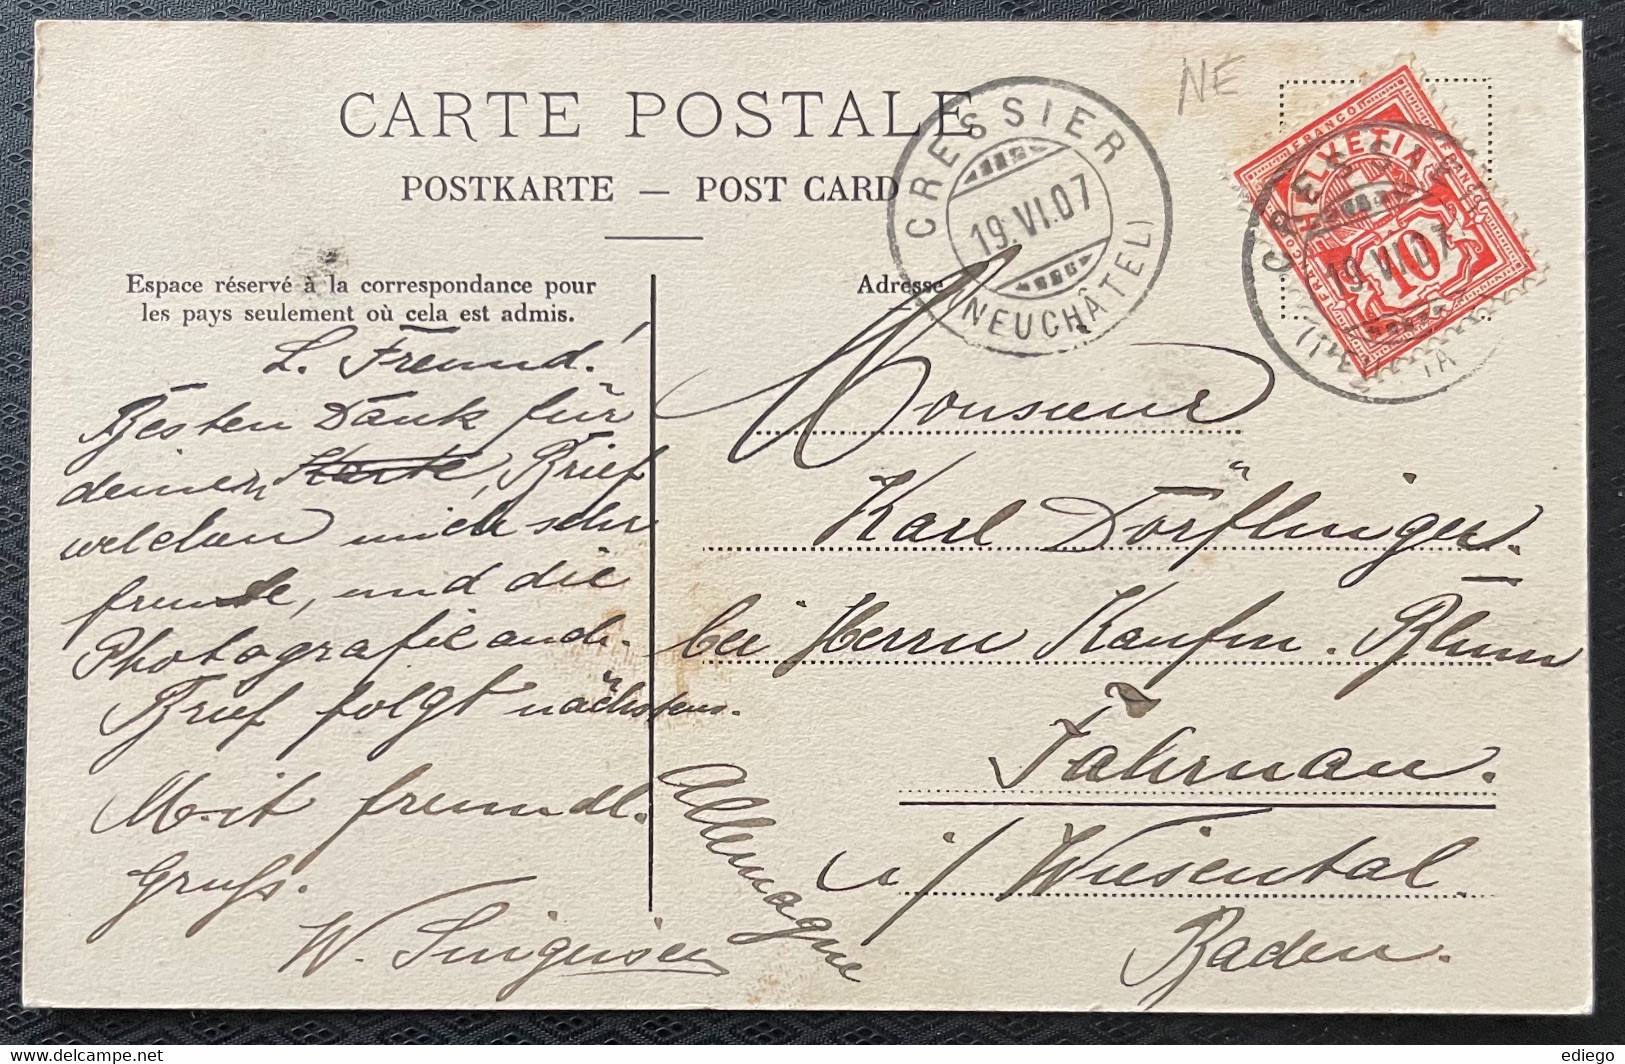 NE
CARTE POSTALE
POSTKARTE — POST CARD
CRESSIER
19.VI.07
(NEUCHÂTEL)
FRANCO
HELVETIA
FRANCO
FRANCO
10
CRESSIER
19.VI.07
Espace réservé à la correspondance pour
les pays seulement où cela est admis.
Adresse
L. Freund!
Besten Dank für
deinen Karte, Brief
welchen mich sehr
freute, und die
Photografie auch.
Brief folgt nächstens.
Mit freundl.
Gruss.
W.
Monsieur
Karl Dörflinger.
bei Herrn Kaufm. Blum
Fahrnau.
i/ Wiesental.
Baden.
Allemagne
ediego